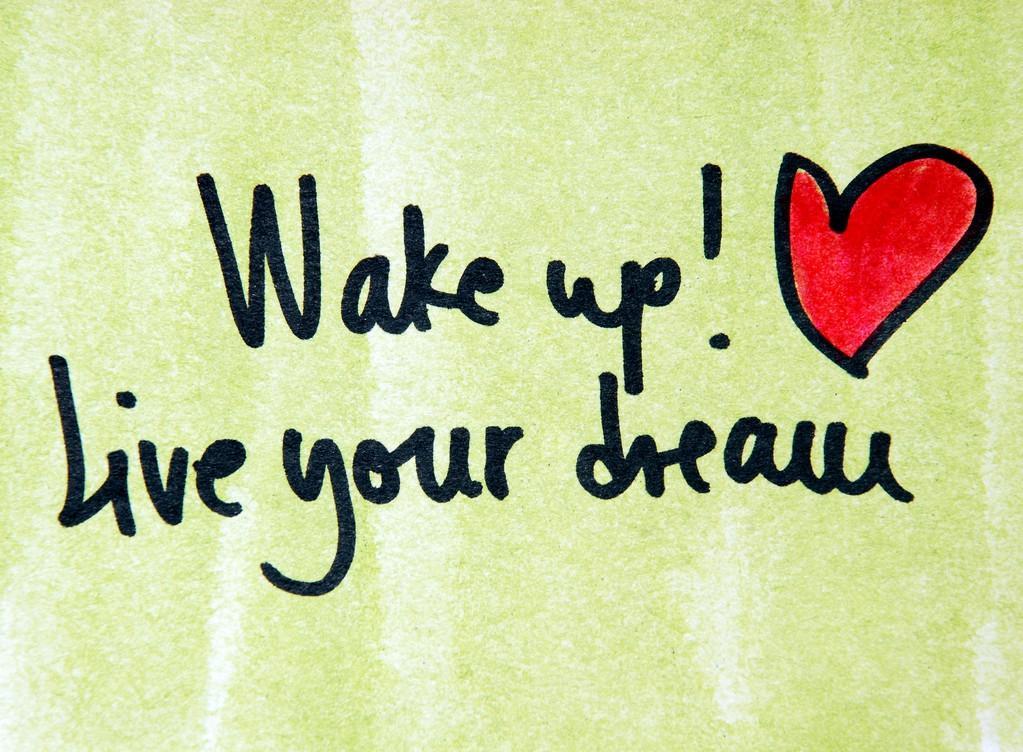 Wake up!
Live your dream